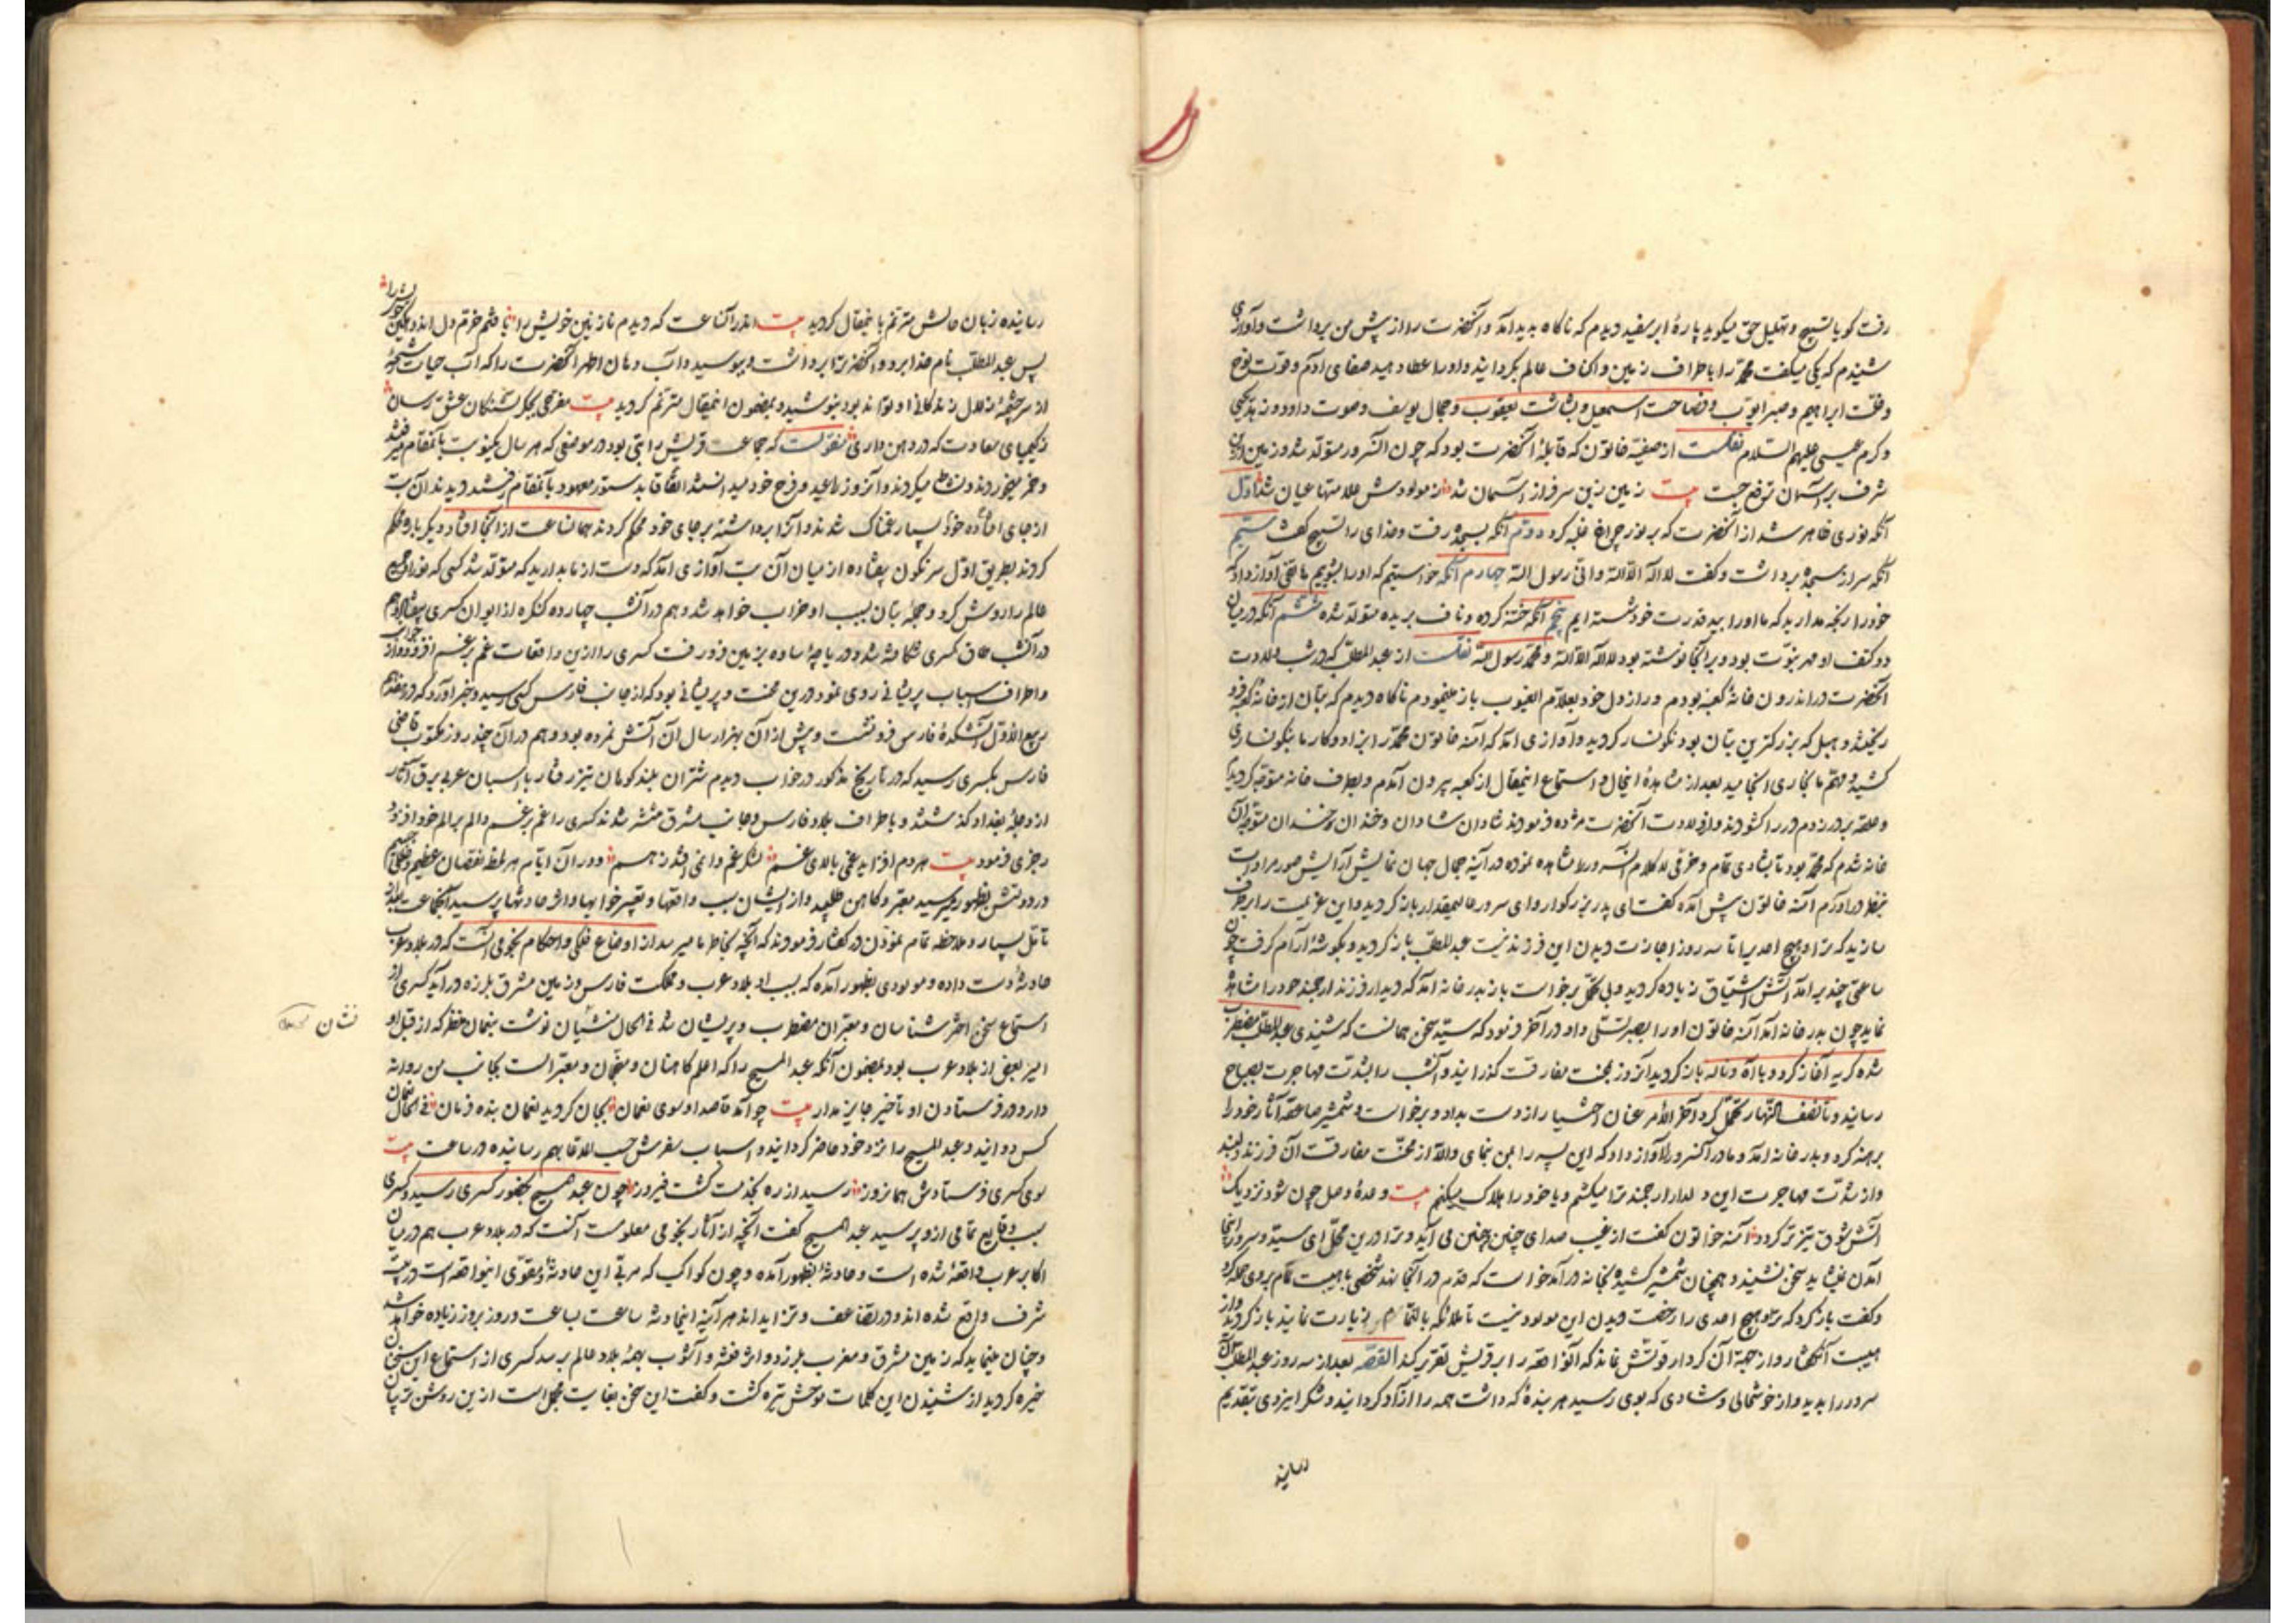 رفت کویا تسبیح و تهلیل حق میکوید پارهٔ ابر سفید دیدم که ناکاه پدید آمد و آنحضرت را از پیش من برداشت و آوازی
شنیدم که یکی میکفت محمد را باطراف زمین و اکناف عالم بکردانید و او را عطا دهید صفای آدم و قوت نوح
و خلّت ابراهیم و صبر ایوب و فصاحت اسمعیل و بشاشت یعقوب و جمال یوسف و صوت داود و زهد یحیی
و کرم عیسی علیهم السلام نقلست از صفیه خاتون که قابلهٔ آنحضرت بود که چون آنسرور متولد شد و زمین از
شرف بر آسمان ترفع جست بیت زمین زین سرفراز آسمان شد ز مولودش علامتها عیان شد اول
آنکه نوری ظاهر شد از آنحضرت که بر نور چراغ غلبه کرد دوّم آنکه بسجده رفت و خدای را تسبیح کفت سیّم
آنکه سر از سجده برداشت و کفت لا اله الا الله و انی رسول الله چهارم آنکه خواستیم که او را بشوییم هاتفی آواز داد که
خود را رنجه مدارید که ما او را بید قدرت خود شسته ایم پنجم آنکه ختنه کرده و ناف بریده متولد شده ششم آنکه در میان
دو کتف او مهر نبوّت بود و بر آنجا نوشته بود لا اله الا الله و محمد رسول الله نقلست از عبد المطلب که در شب ولادت
آنحضرت در اندرون خانهٔ کعبه بودم و راز دل خود بعلام الغیوب باز مینمودم ناکاه دیدم که بتان از خانه کعبه فرو
ریختند و هبل که بزرکترین بتان بود نکونسار کردید و آوازی آمد که آمنه خاتون محمد را بزاد و کار ما بنکونساری
کشید و مهم ما بخاری انجامید بعد از مشاهدهٔ اینحال و استماع اینمقال از کعبه بیرون آمدم و بطرف خانه متوجه کردیدم
و حلقه بر در زدم در را کشودند و از ولادت آنحضرت مژده فرمودند شادان شادان و خندان خندان متوجه آن
خانه شدم که محمد بود تا بشادی تمام و خرّمی لا کلام آنسرور را مشاهده نموده در آینه جمال جهان نمایش آرایش صور مرادات
بنظر در آورم آمنه خاتون پیش آمده کفت ای پدر بزرکوار و ای سرور عالیمقدار باز کردید و این عزیمت را بر طرف
سازید که ترا و هیچ احدی را تا سه روز اجازت دیدن این فرزند نیست عبد المطلب باز کردید و بکوشهٔ آرام کرفت چون
ساعتی چند برآمد آتش اشتیاق زیاده کردید و بی تحمل برخواست باز بدر خانه آمد که دیدار فرزند ارجمند خود را مشاهده
نماید چون بدر خانه آمد آمنه خاتون او را بصبر تسلی داد و در آخر فرمود که سید سخن همانست که شنیدی عبد المطلب مضطرب
شده کریه آغاز کرد و با آه و ناله باز کردید آنروز بمحنت مفارقت کذرانید و آنشب را بشدت مهاجرت بصباح
رسانید و تا نصف النهار تحمل کرد آخر الامر عنان اختیار را از دست بداد و برخواست و شمشیر صاعقه آثار خود را
برهنه کرد و بدر خانه آمد و مادر آنسرور را آواز داد که این پسر را بمن بنمای و الا از محنت مفارقت آن فرزند دلبند
و از شدّت مهاجرت این دلدار ارجمند ترا میکشم و یا خود را هلاک میکنم بیت وعدهٔ وصل چون شود نزدیک
آتش شوق تیزتر کردد آمنه خواتون کفت از غیب صدای چنین و چنین می آید و ترا درین محل ای سید و سرور اینجا
آمدن نمیشاید سخن نشنید و همچنان شمشیر کشید و بخانه در آمد خواست که قدم در آنجا نهد شخصی با هیبت تمام بر وی حمله کرد
و کفت باز کرد که ترا و هیچ احدی را رخصت دیدن این مولود نیست تا ملائکه بالتمام زیارت نمایند باز کردید و از
هیبت آنکفتار و از جهبهٔ آن کردار قوتش نماند که آنواقعه را بر قریش تقریر کند القصه بعد از سه روز عبد المطلب آن
سرور را بدید و از خوشحالی و شادی که بوی رسید هر بندهٔ که داشت همه را آزاد کردانید و شکر ایزدی بتقدیم
رسانید
رسانیده زبان حالش مترنم باینمقال کردید بیت اندر آنساعت که دیدم نازنین خویش را یافتم خرّم دل اندوهکین خویش را
پس عبد المطلب نام خدا برد و آنحضرترا برداشت و ببوسید و آب دهان اطهر آنحضرت را که آب حیات رشحهٔ
از سرچشمهٔ زلال زندکانی او تواند بود بنوشید و بمضمون اینمقال مترنم کردید بیت مفرحی بجکر تشنکان عشق رسان
ز کیمیای سعادت که در دهن داری منقولست که جماعت قریش را بتی بود در موضعی که هر سال یکنوبت بآنمقام میرفتند
و خمر میخوردند و نشاط میکردند و آنروز را عید و فرح خود میدانستند اتفاقا بدستور معهود بآنمقام رفتند دیدند آن بت
از جای افتاده خود بسیار غمناک شدند و آنرا برداشته بر جای خود محکم کردند همانساعت از آنجا افتاد دیکر باره محکم
کردند بطریق اول سرنکون بیفتاده از میان آن بت آوازی آمد که دست از ما بدارید که متولد شد کسی که نور او جمیع
عالم را روشن کرد و جمله بتان بسبب او خراب خواهد شد و هم در آنشب چهارده کنکره از ایوان کسری بیفتاد و هم
در آنشب طاق کسری شکافته شد و دریاچهٔ ساوه بزمین فرو رفت کسری را ازین واقعات غم بر غم افزود و از
و اطراف اسباب پریشانی روی نمود درین محنت و پریشانی بود که از جانب فارس کسی رسید و خبر آورد که در هفدهم
ربیع الاوّل آتشکدهٔ فارس فرو نشست و پیش از آن بهزار سال آن آتش نمرده بود و هم در آن چند روز مکتوب قاضی
فارس بکسری رسید که در تاریخ مذکور در خواب دیدم شتران بلند کوهان تیز رفتار با اسبان عربی برق آثار
از دجلهٔ بغداد کذشتند و باطراف بلاد فارس و جانب مشرق منتشر شدند کسری را غم بر غم و الم بر الم خود افزود
رجزی فرمود بیت هر دم افزاید غمی بالای غم لشکر غم دایمی افتد ز هم و در آن ایام هر لحظه نقصان عظیم
در دولتش بظهور میرسید معبر و کاهن طلبید و از ایشان سبب واقعها و تعبیر خوابها و اثر حادثها پرسید آنجماعت بعد از
تأمل بسیار و ملاحظه تمام نمودن در کفتار فرمودند که آنچه بخاطر ما میرسد از اوضاع فلکی و احکام نجومی آنست که در بلاد عرب
حادثهٔ دست داده و مولودی بظهور آمده که بسبب او بلاد عرب و مملکت فارس و زمین مشرق بلرزه در آید کسری از
استماع سخن اخترشناسان و معبران مضطرب و پریشان شد فی الحال منشیان نوشت بنعمان منذر که از قبل او
امیر بعضی از بلاد عرب بود بمضمون آنکه عبد المسیح را که اعلم کاهنان و منجمان و معبرانست بجانب من روانه
دارد و در فرستادن او تأخیر جایز ندارد بیت چو آمد قاصد او سوی نعمان بجان کردید نعمان بنده فرمان فی الحال نعمان
کس دوانید و عبد المسیح را نزد خود حاضر کردانید و اسباب سفرش حسب اللاقا بهم رسانیده در ساعت بیت
سوی کسری فرستادش همانروز رسید از ره بخدمت کشت فیروز چون عبد المسیح بحضور کسری رسید و کسری
سبب وقایع تمامی ازو پرسید عبد المسیح کفت آنچه از آثار نجومی معلومست آنست که در بلاد عرب هم در میان
اکابر عرب واقعهٔ شده است و حادثهٔ بظهور آمده و چون کواکب که مربی این حادثه و مقوّی اینواقعه است در بیت
شرف واقع شده اند و در تضاعف و تزاید اند هر آینه اینحادثه ساعت بساعت و روز بروز زیاده خواهد شد
و چنان مینماید که زمین مشرق و مغرب بلرزد و اثر فتنه و آشوب بهمهٔ بلاد عالم برسد کسری از استماع این سخن
خیره کردید از شنیدن این کلمات نوحش تیره کشت و کفت این سخن بغایت مجمل است ازین روشن تر بیان
نشان